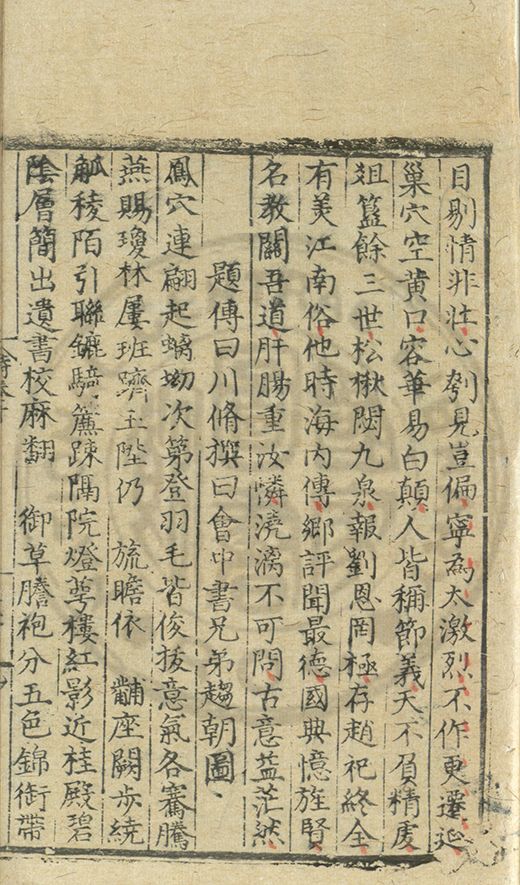 目剔情非壯心刳見豈偏寧為太激烈不作更遷延
巢穴空黄口容華易白顛人皆稱節義天不負精䖍
俎簋餘三世松楸閟九泉報劉恩罔極存趙祀終全
有美江南俗他時海内傳鄉評聞最德國典憶旌賢
名教關吾道肝腸重汝憐澆漓不可問古意益茫然
題傅曰川脩撰曰會中書兄弟趨朝圖
鳳穴連翩起螭坳次第登羽毛皆俊拔意氣各騫騰
燕賜瓊林屢班躋玉陛仍 旒瞻依 黼座闕步繞
觚稜陌引聯鑣騎簾踈隔院燈萼樓紅影近桂殿碧
陰層簡出遺書校麻翻 御草謄袍分五色錦銜帶